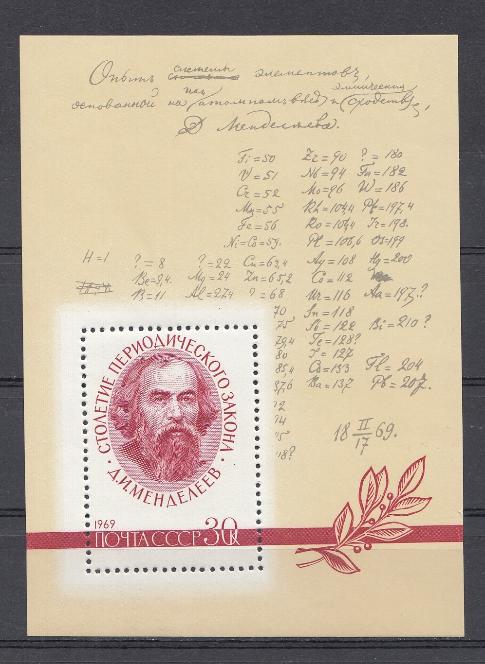 Опытъ системы элементовъ,
основанной на ихъ атомномъ весѣ и химическомъ сходствѣ,
Д. Менделѣева.
Ti=50 Zr=90 ?=180
V=51 Nb=94 Ta=182
Cr=52 Mo=96 W=186
Mn=55 Rh=104,4 Pt=197,4
Fe=56 Ro=104,4 Ir=198.
Ni=Co=59. Pl=106,6 Os=199
H=1 ?=8 ?=22 Cu=63,4 Ag=108 Hg=200
Be=9,4. Mg=24 Zn=65,2 Co=112
B=11 Al=27,4 ?=68 Ur=116 Au=197?
70 Sn=118
75 Sb=122 Bi=210?
79,4 Te=128?
80 I=127
85,4 Cs=133 Tl=204
87,6 Ba=137 Pb=207.
92
94
95
118?
18 II/17 69.
СТОЛЕТИЕ ПЕРИОДИЧЕСКОГО ЗАКОНА
Д.И.МЕНДЕЛЕЕВ
1969
ПОЧТА СССР 30К